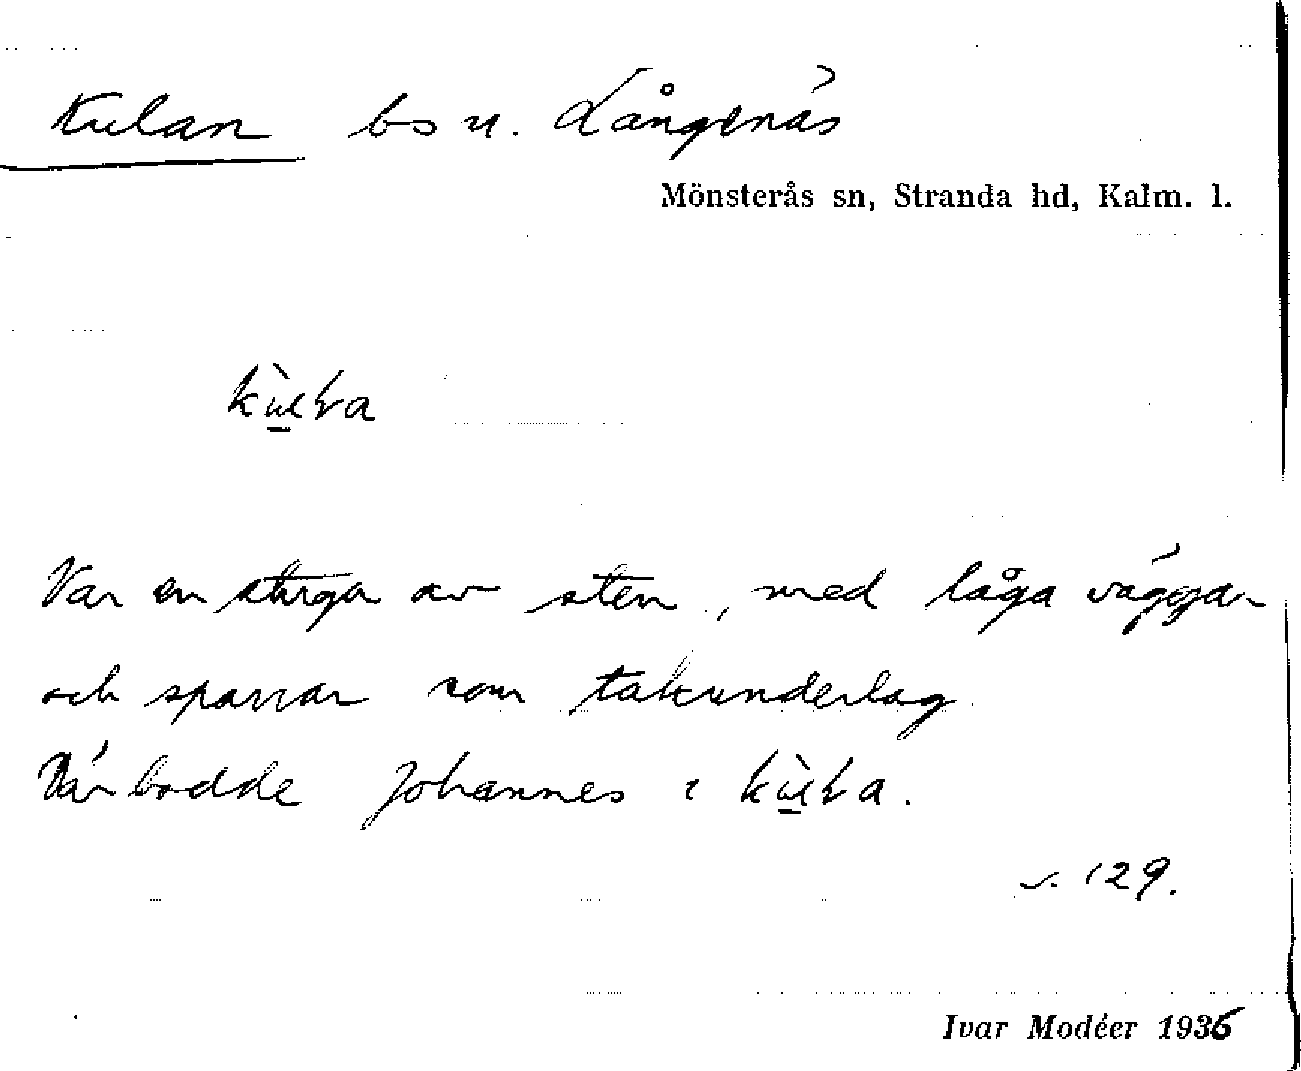 Kulan bs u. Långenäs
Mönsterås sn, Stranda hd, Kalm. l.
Var en stuga av sten, med låga väggar
och sparrar som takunderlag
Där bodde Johannes i
s. 129.
Ivar Modéer 1936